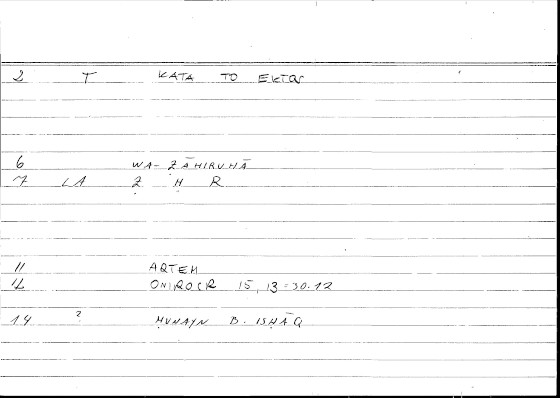 2 T KATA TO EKTOS
6 WA-ẒĀHIRUHĀ
7 LA Ẓ H R
11 ARTEM
12 ONIROCR 15,13=30.12
14 ? ḤUNAYN B. ISḤĀQ